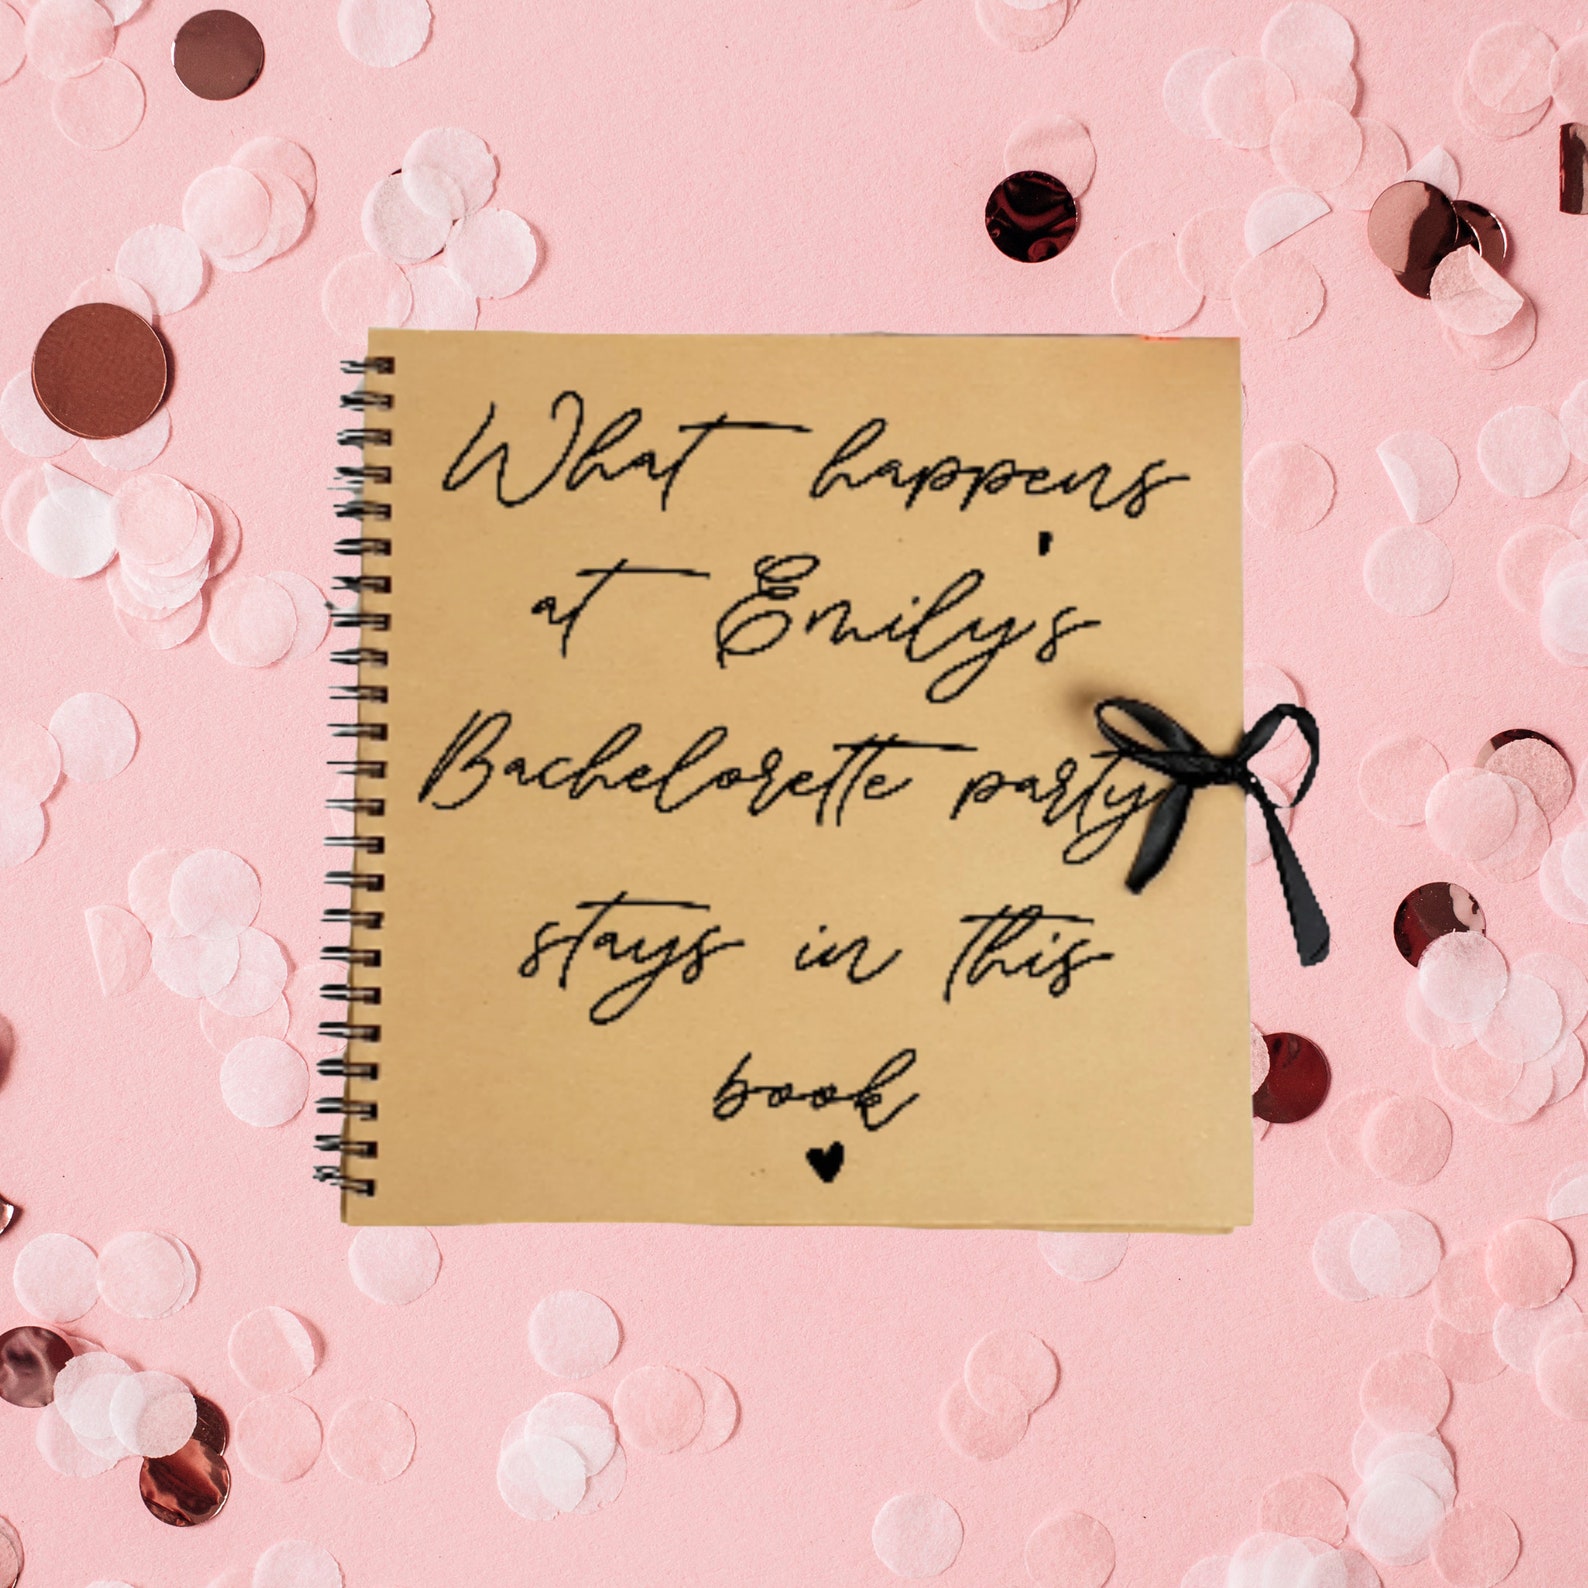 What happens
at Emily's
Bachelorette party
stays in this
book